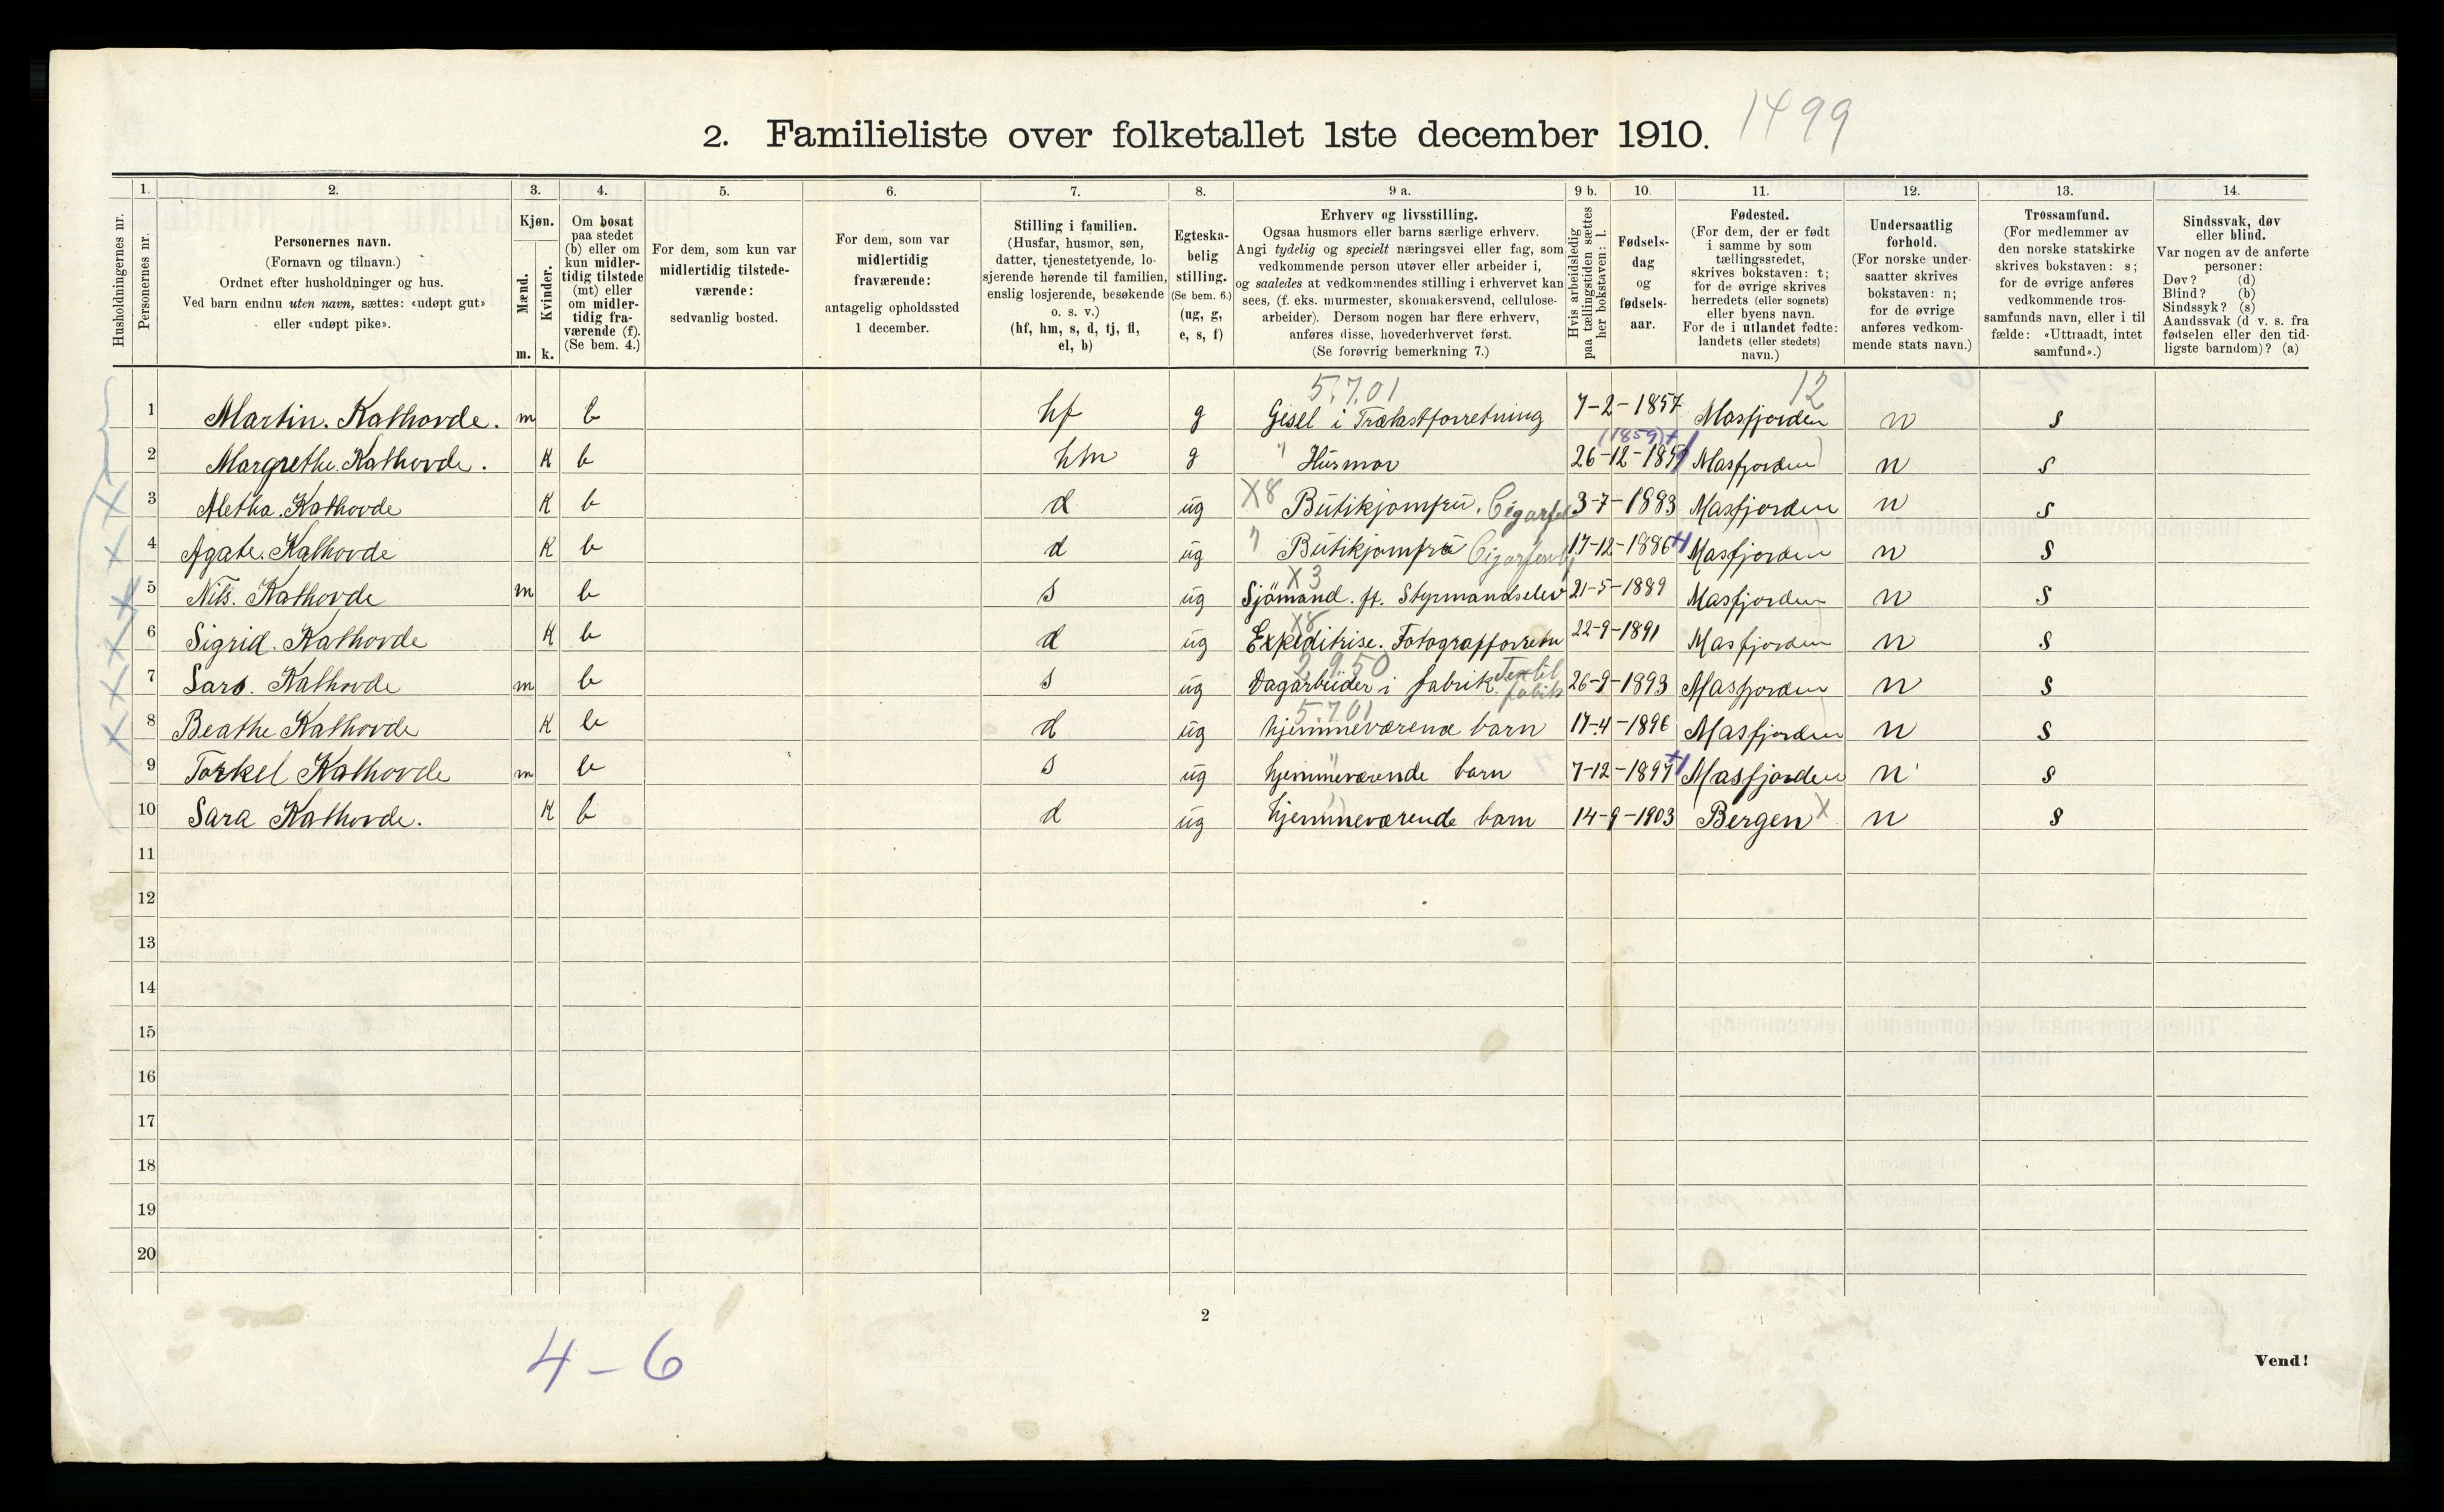 2. Familieliste over folketallet 1ste december 1910. 1499
Husholdningernes nr.
1.
Personernes nr.
2.
Personernes navn.
(Fornavn og tilnavn.)
Ordnet efter husholdninger og hus.
Ved barn endnu uten navn, sættes: «udøpt gut»
eller «udøpt pike».
3.
Kjøn.
Mænd.
Kvinder.
m. k.
4.
Om bosat
paa stedet
(b) eller om
kun midler-
tidig tilstede
(mt) eller
om midler-
tidig fra-
værende (f).
(Se bem. 4.)
5.
For dem, som kun var
midlertidig tilstede-
værende:
sedvanlig bosted.
6.
For dem, som var
midlertidig
fraværende:
antagelig opholdssted
1 december.
7.
Stilling i familien.
(Husfar, husmor, søn,
datter, tjenestetyende, lo-
sjerende hørende til familien,
enslig losjerende, besøkende
o. s. v.)
(hf, hm, s, d, tj, fl,
el, b)
8.
Egteska-
belig
stilling.
(Se bem. 6.)
(ug, g,
e, s, f)
9 a.
Erhverv og livsstilling.
Ogsaa husmors eller barns særlige erhverv.
Angi tydelig og specielt næringsvei eller fag, som
vedkommende person utøver eller arbeider i,
og saaledes at vedkommendes stilling i erhvervet kan
sees, (f. eks. murmester, skomakersvend, cellulose-
arbeider). Dersom nogen har flere erhverv,
anføres disse, hovederhvervet først.
(Se forøvrig bemerkning 7.)
9 b.
Hvis arbeidsledig
paa tællingstiden sættes
her bokstaven: l.
10.
Fødsels-
dag
og
fødsels-
aar.
11.
Fødested.
(For dem, der er født
i samme by som
tællingsstedet,
skrives bokstaven: t;
for de øvrige skrives
herredets (eller sognets)
eller byens navn.
For de i utlandet fødte:
landets (eller stedets)
navn.)
12.
Undersaatlig
forhold.
(For norske under-
saatter skrives
bokstaven: n;
for de øvrige
anføres vedkom-
mende stats navn.)
13.
Trossamfund.
(For medlemmer av
den norske statskirke
skrives bokstaven: s;
for de øvrige anføres
vedkommende tros-
samfunds navn, eller i til
fælde: «Uttraadt, intet
samfund».)
14.
Sindssvak, døv
eller blind.
Var nogen av de anførte
personer:
Døv? (d)
Blind? (b)
Sindssyk? (s)
Aandssvak (d v. s. fra
fødselen eller den tid-
ligste barndom)? (a)
5.7.01 12
1 Martin. Kalhovde. m b hf g Gesel i Trælastforretning 7-2-1857 Masfjorden n s
(1859)+
2 Margrethe. Kalhovde. K b hm g " Husmor 26-12-1859 Masfjorden n s
3 Aletha. Kalhovde K b d ug X8 Butikjomfru. Cigarfor 3-7-1883 Masfjorden n s
4 Agate. Kalhovde K b d ug " Butikjomfru 17-12-1886 +1 Masfjorden n s
X3
5 Nils. Kalhovde m b s ug Sjömand. ft. Styrmandselev 21-5-1889 Masfjorden n s
X8
6 Sigrid. Kalhovde K b d ug Expeditrise. Fotografforretn 22-9-1891 Masfjorden n s
2.9.50
7 Lars. Kalhovde m b s ug Dagarbeider i fabrik. Textil fabik 26-9-1893 Masfjorden n s
5.7.01
8 Beathe Kalhovde K b d ug hjemmeværend barn 17-4-1896 Masfjorden n s
9 Torkel Kalhovde m b s ug hjemmeværende barn 7-12-1897 +1 Masfjorden n s
10 Sara Kalhovde. K b d ug hjemmeværende barn 14-9-1903 Bergen X n s
11
12
13
14
15
16
17
18
19
20
2
4-6
Vend!